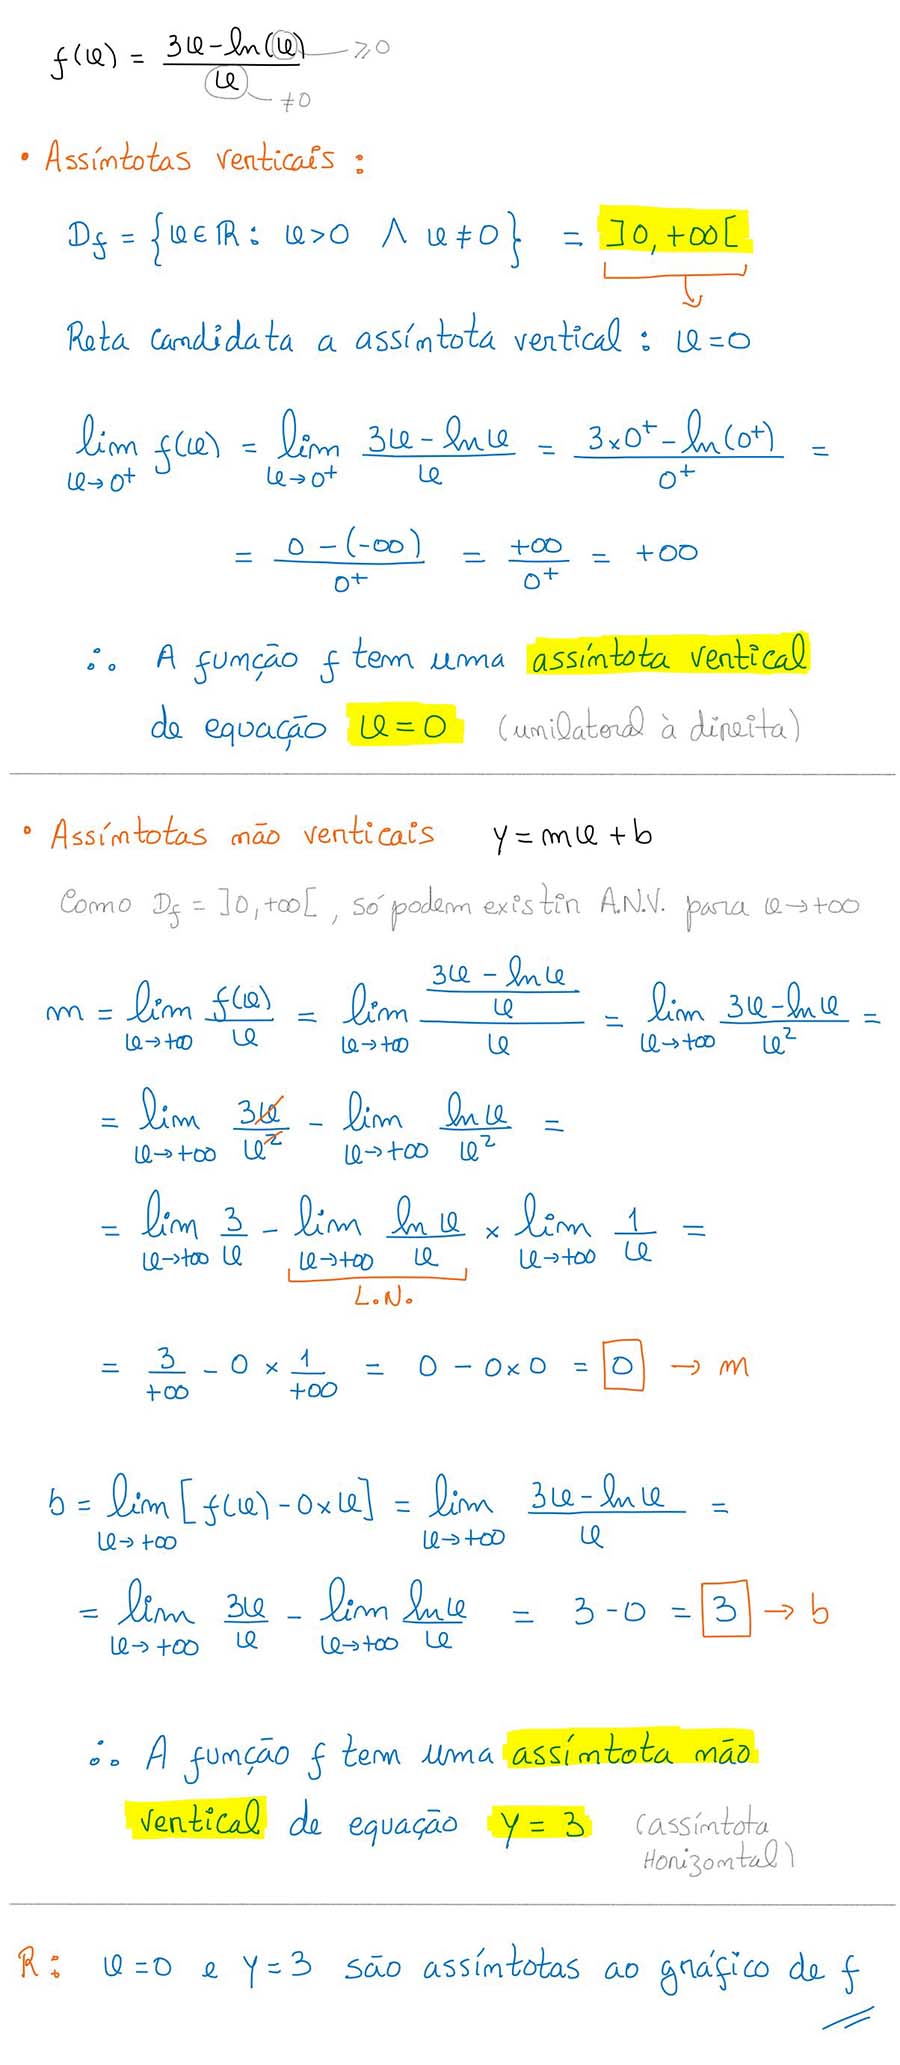 f(x) = (3x - ln(x))/x ≥0
≠0
• Assíntotas verticais :
Df = {x∈ℝ : x>0 ∧ x≠0} = ]0,+∞[
Reta candidata a assíntota vertical : x=0
lim x→0⁺ f(x) = lim x→0⁺ (3x - ln x)/x = (3×0⁺ - ln(0⁺))/0⁺ =
= (0 - (-∞))/0⁺ = +∞/0⁺ = +∞
∴ A função f tem uma assíntota vertical
de equação x=0 (unilateral à direita)
• Assíntotas não verticais y=mx+b
Como Df = ]0,+∞[ , só podem existir A.N.V. para x→+∞
m = lim x→+∞ f(x)/x = lim x→+∞ ((3x - ln x)/x)/x = lim x→+∞ (3x - ln x)/x² =
= lim x→+∞ 3x/x² - lim x→+∞ ln x/x² =
= lim x→+∞ 3/x - lim x→+∞ ln x/x × lim x→+∞ 1/x =
L.N.
= 3/+∞ - 0 × 1/+∞ = 0 - 0×0 = 0 → m
b = lim x→+∞ [f(x) - 0×x] = lim x→+∞ (3x - ln x)/x =
= lim x→+∞ 3x/x - lim x→+∞ ln x/x = 3-0 = 3 → b
∴ A função f tem uma assíntota não
vertical de equação y = 3 (assíntota
Horizontal)
R: x=0 e y=3 são assíntotas ao gráfico de f